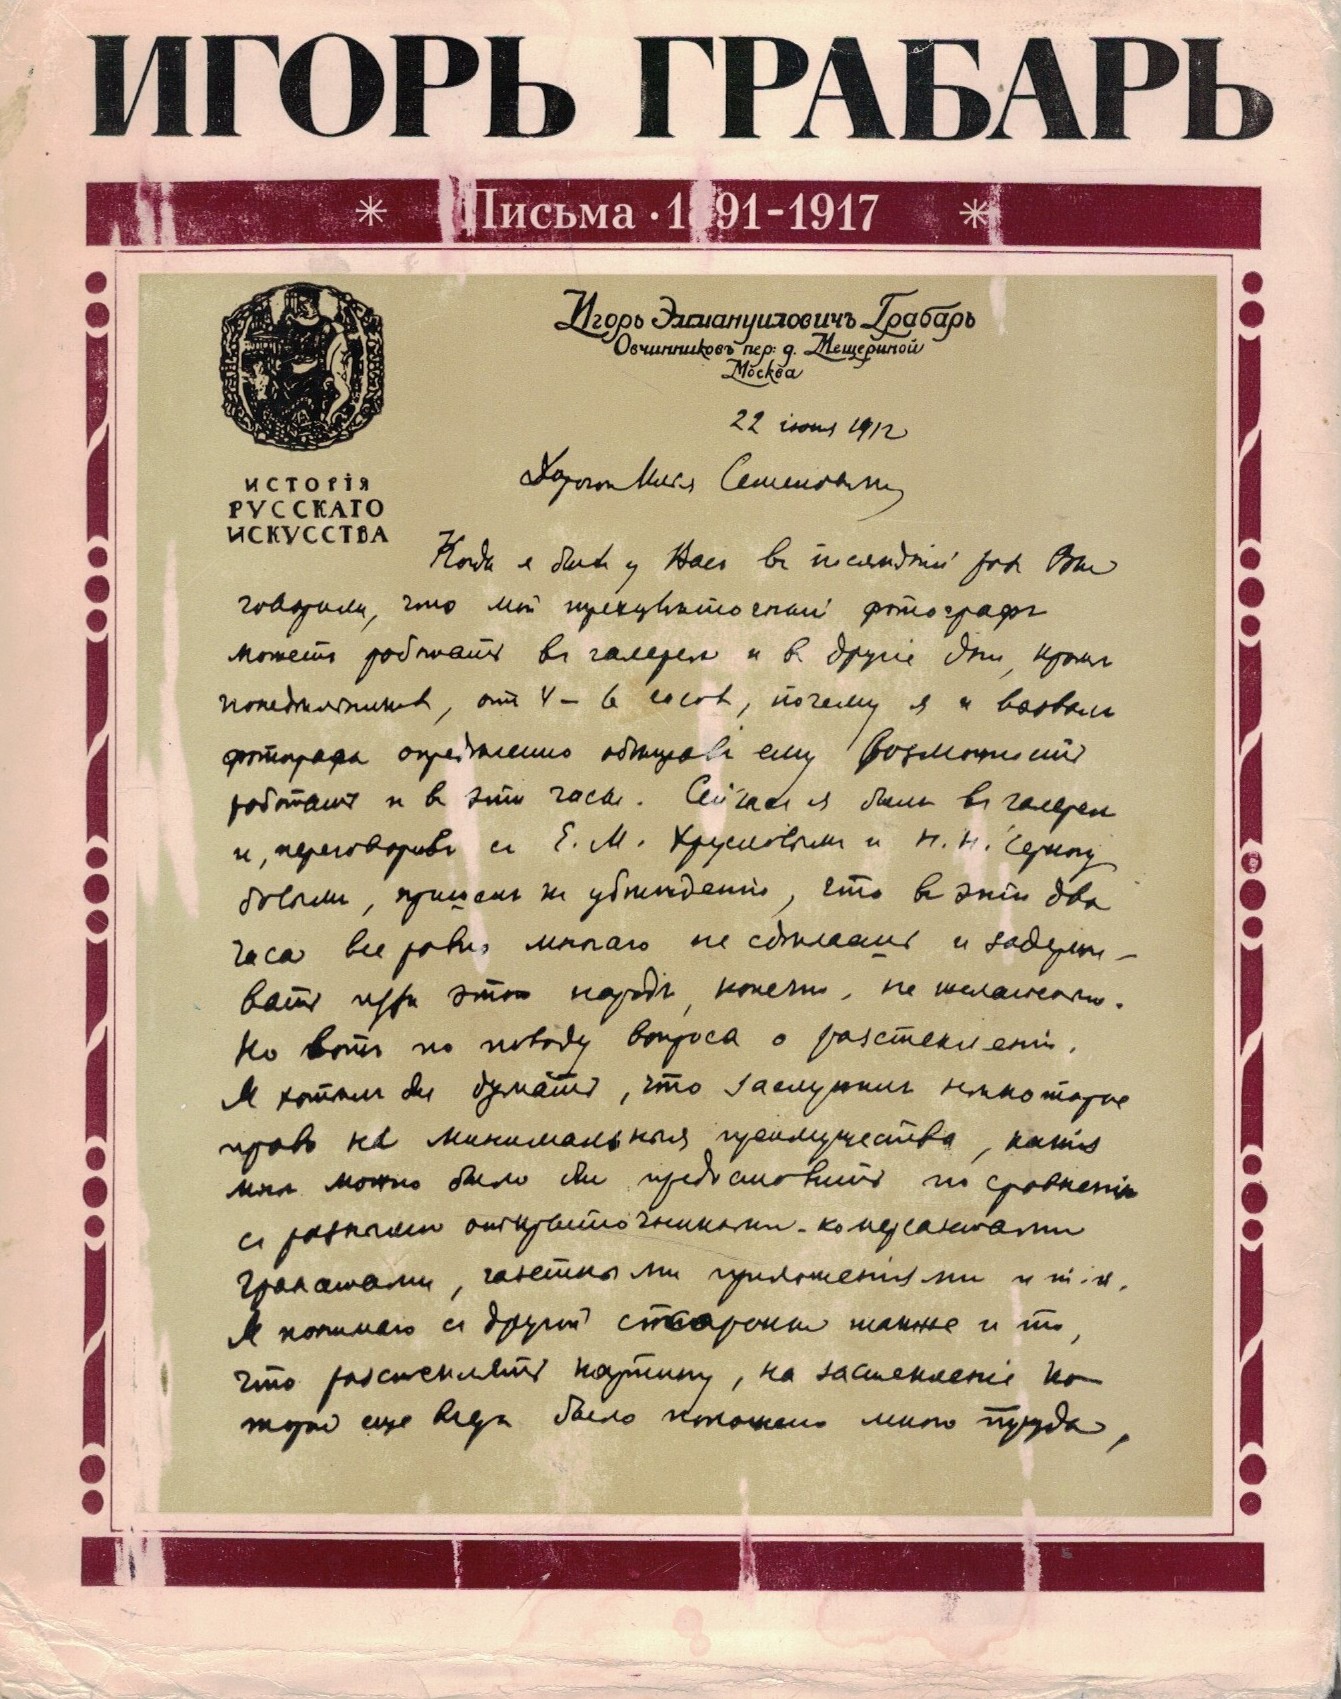 ИГОРЬ ГРАБАРЬ
Письма · 1891-1917
Игорь Эммануиловичъ Грабарь
Овчинниковъ пер: д. Мещериной
Москва
ИСТОРІЯ
РУССКАГО
ИСКУССТВА
22 1912
Дорогой Илья Семеновичъ
Когда я былъ у Васъ въ послѣдній разъ Вы
говорили, что мой фотографъ
можетъ работать въ галереѣ и въ другіе дни, кромѣ
понедѣльниковъ, отъ 4 – 6 часовъ, почему я и вызвалъ
фотографа опредѣленно обѣщавъ ему возможность
работать и въ эти часы. Сейчасъ я былъ въ галереѣ
и, переговоривъ съ Е. М. Хрусловымъ и Н. Н. Черногу
бовымъ, пришелъ къ убѣжденію, что въ эти два
часа все равно многаго не сдѣлаешь и задержи–
вать изъ за этого народъ, конечно, не желательно.
Но вотъ по поводу вопроса о разстекленіи.
Я хотѣлъ бы думать, что заслужилъ нѣкоторое
право на минимальныя преимущества, какія
мнѣ можно было бы предоставить по сравненію
съ разными открыточниками-комерсантами
гранатами, газетными приложеніями и т. п.
Я понимаю съ другой стороны также и то,
что разстеклять картину, на застекленіе ко–
торой еще вчера было положено много труда,